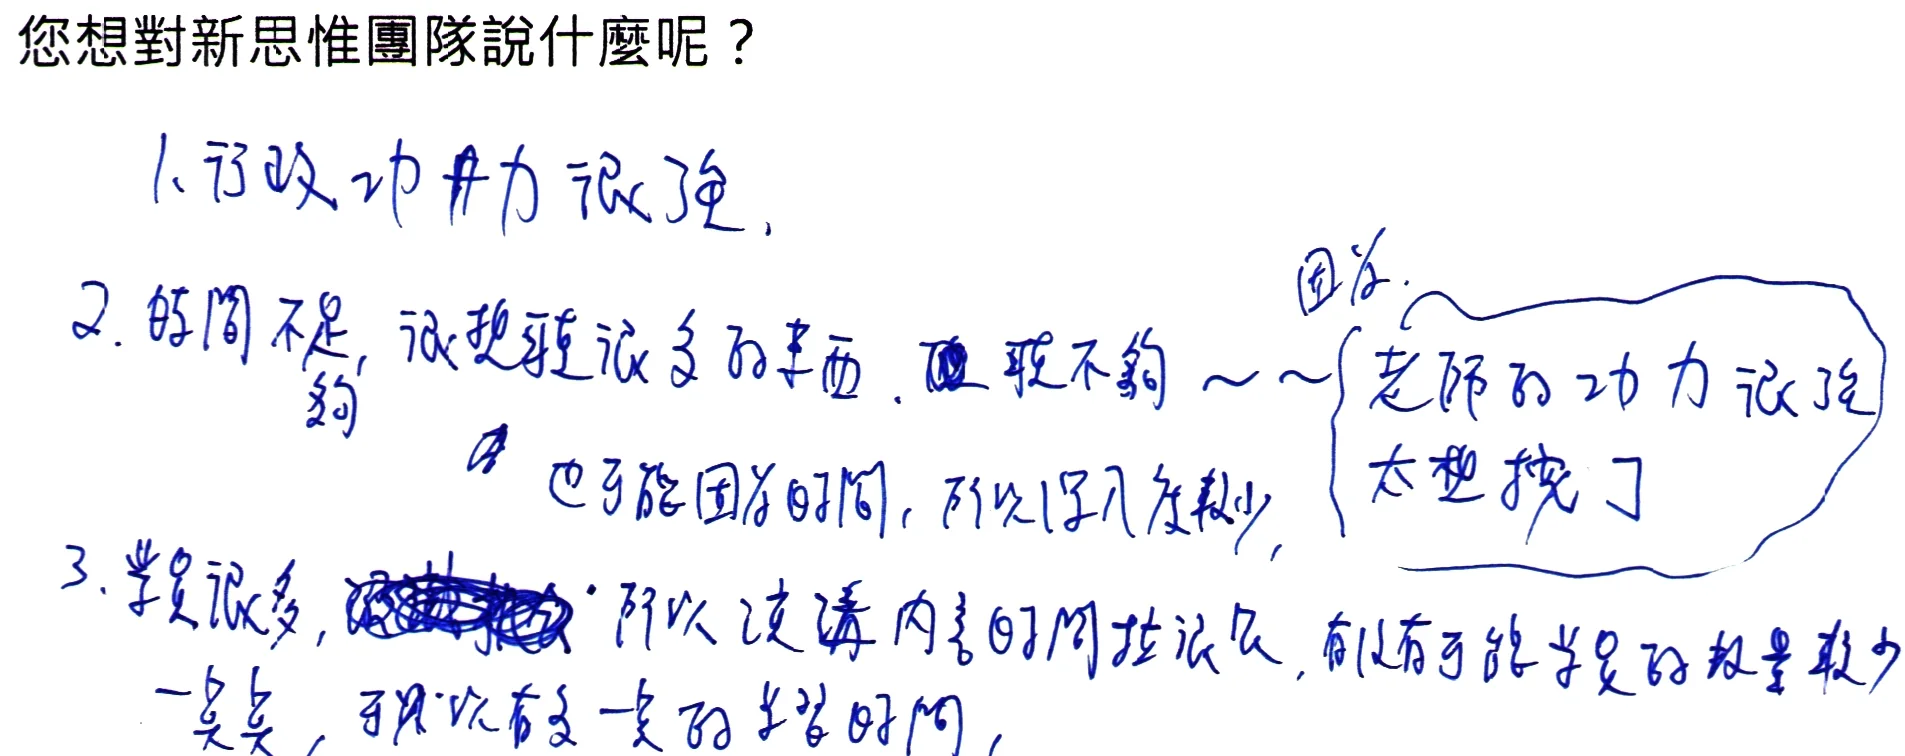 您想對新思惟團隊說什麼呢？
1、行政功力很強.
2. 時間不足, 很想聽很多的東西. 聽不夠～～
夠
因為.
老師的功力很強
太想挖了
也可能因為時間, 所以深入度較少,
3. 學員很多, 所以演講內容時間拉很長, 有沒有可能學員的數量較少
一點點, 可以有多一點的學習時間,